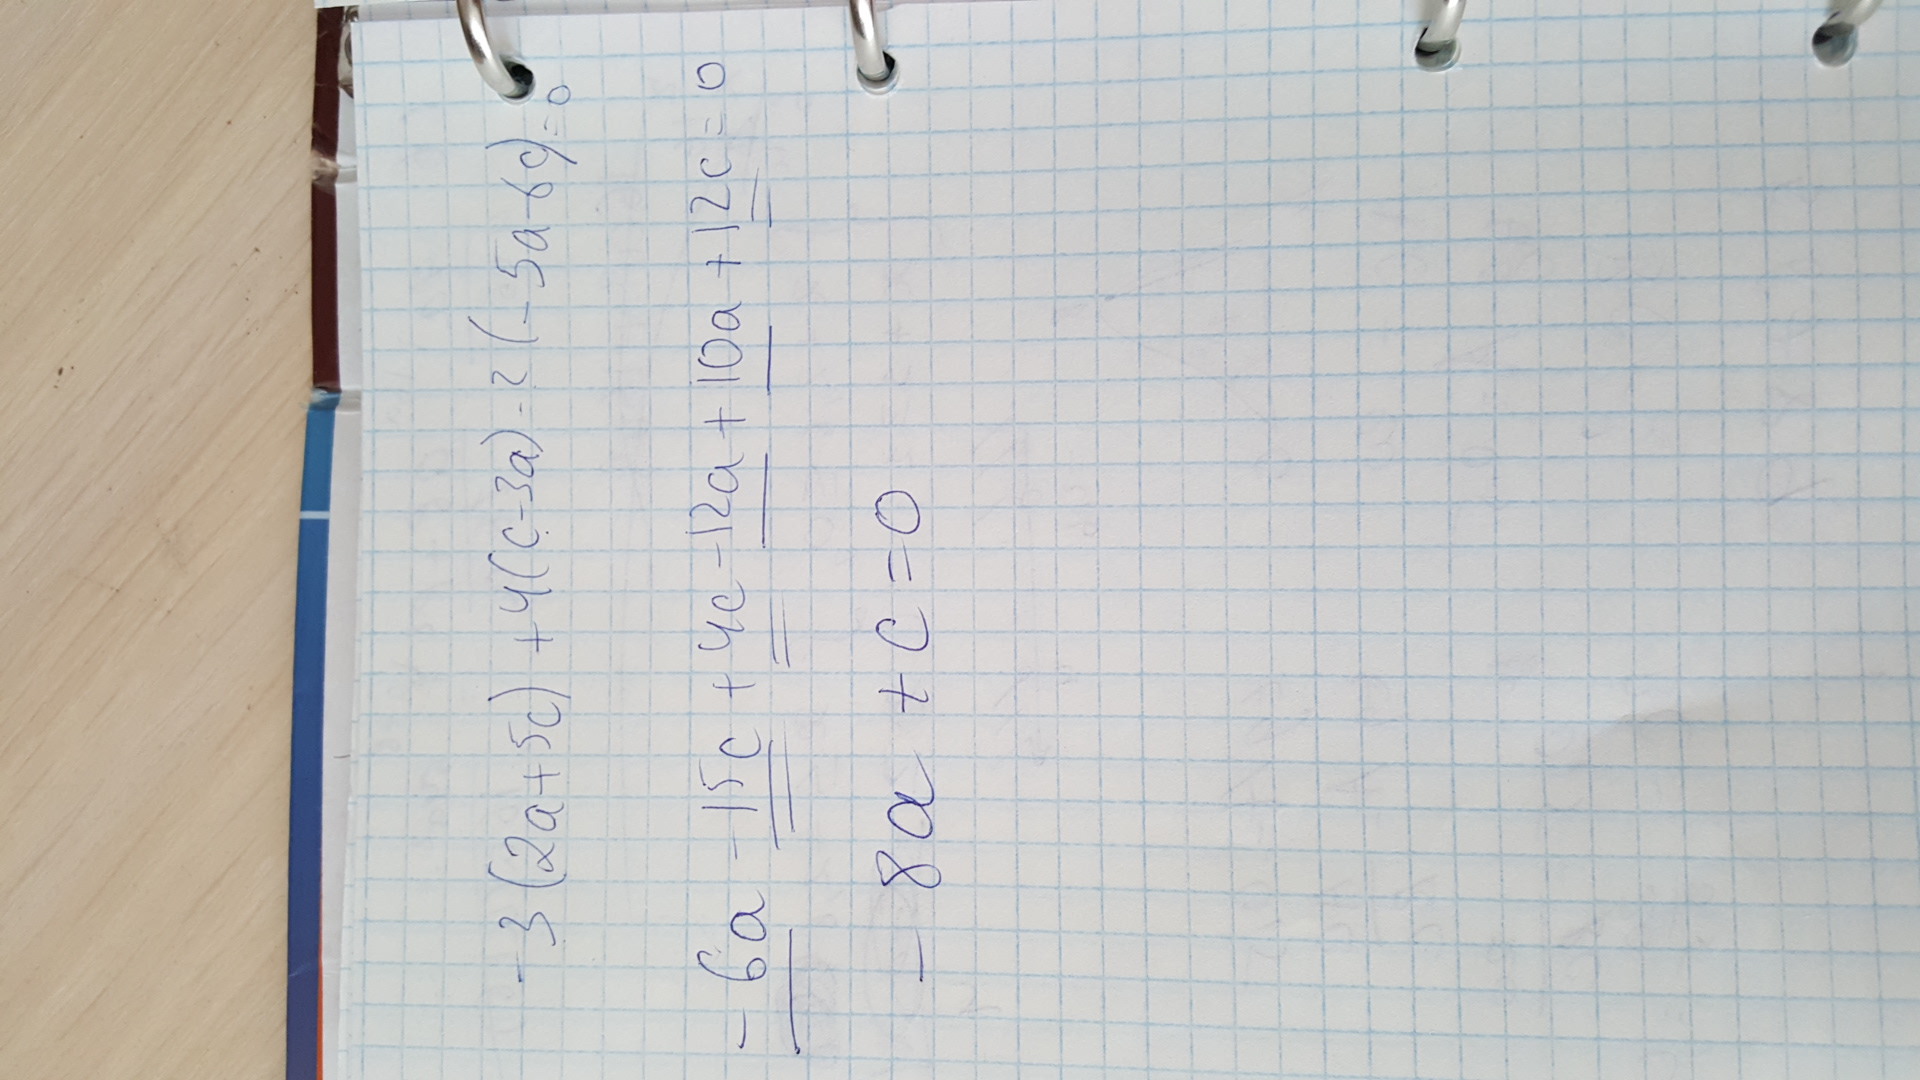 -3(2a+5c)+4(c-3a)-2(-5a-6c)=0
-6a-15c+4c-12a+10a+12c=0
-8a+c=0